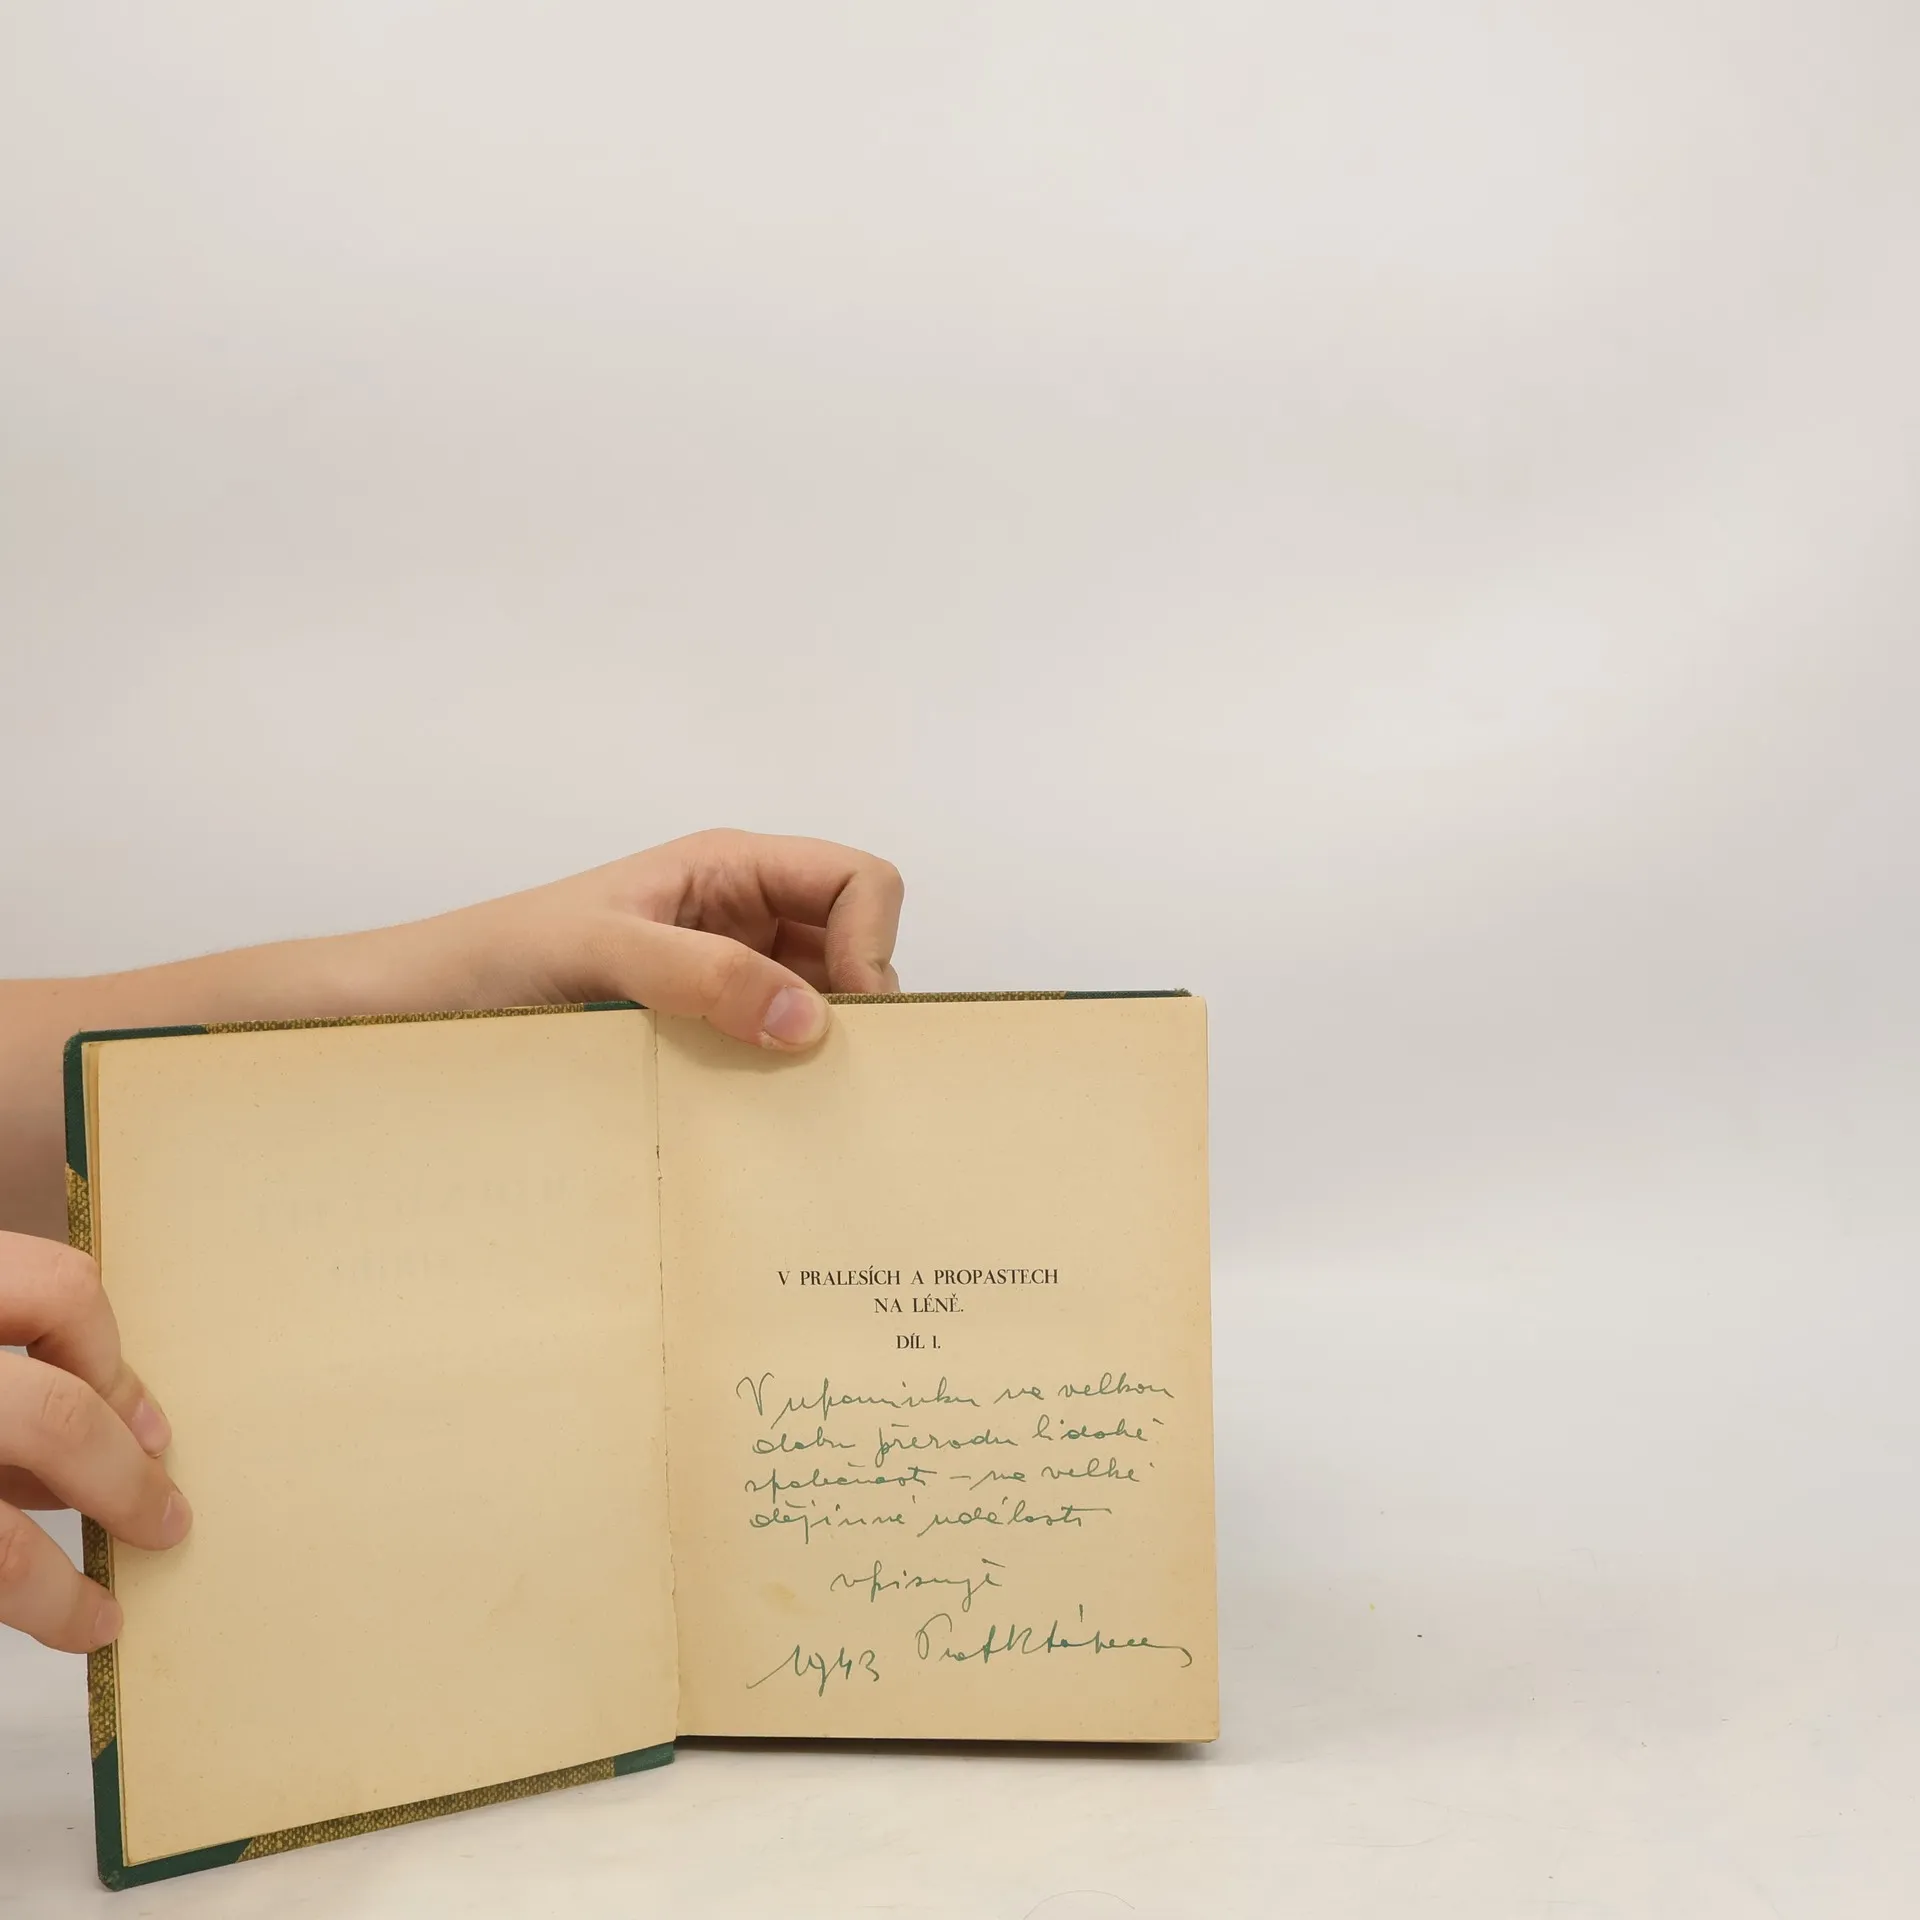 V PRALESÍCH A PROPASTECH
NA LÉNĚ.
DÍL I.
V upomínku na velkou
dobu přerodu lidské
společnosti – na velké
dějinné události
vpisuje
1943 Prof